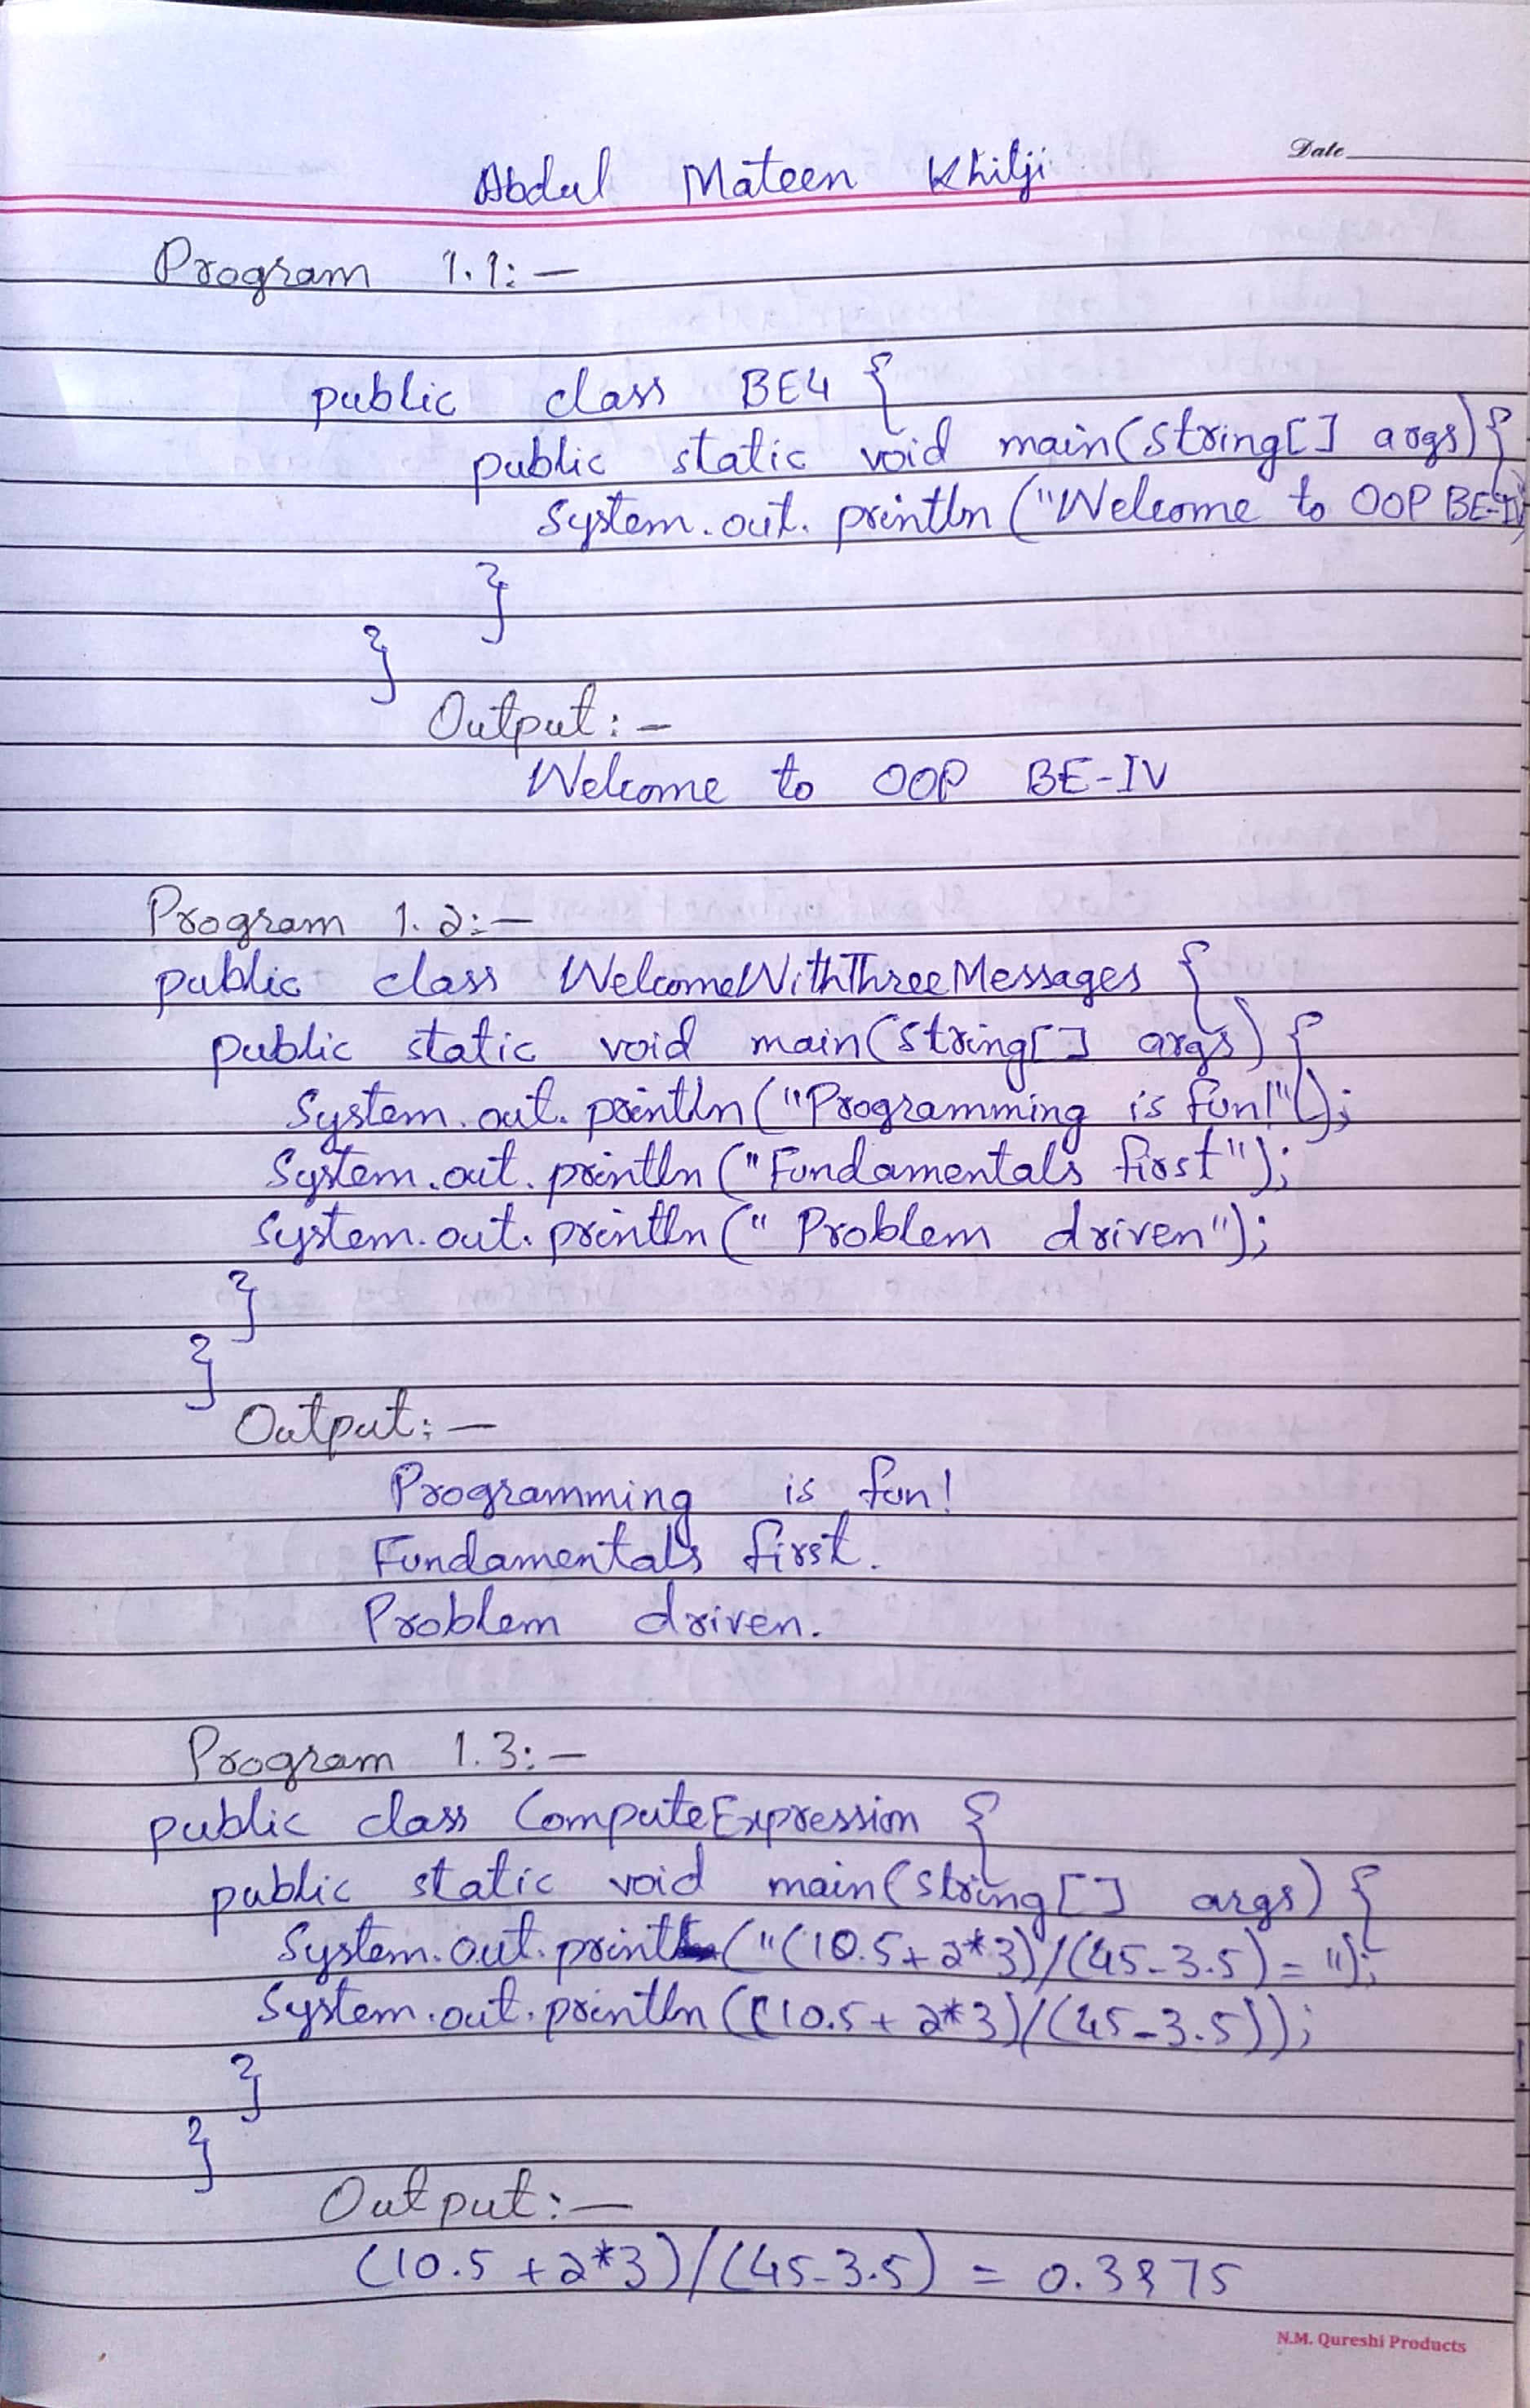 Date
Abdul Mateen Khilji
Program 1.1:-
public class BE4 {
public static void main(String[] args){
System.out.println("Welcome to OOP BE-IV")
}
}
Output:-
Welcome to OOP BE-IV
Program 1.2:-
public class WelcomeWithThreeMessages {
public static void main(String[] args) {
System.out.println("Programming is fun!");
System.out.println("Fundamentals first");
System.out.println(" Problem driven");
}
}
Output:-
Programming is fun!
Fundamentals first.
Problem driven.
Program 1.3:-
public class ComputeExpression {
public static void main(String[] args) {
System.out.print("(10.5+2*3)/(45-3.5)= ");
System.out.println((10.5+2*3)/(45-3.5));
}
}
Output:-
(10.5+2*3)/(45-3.5) = 0.3975
N.M. Qureshi Products